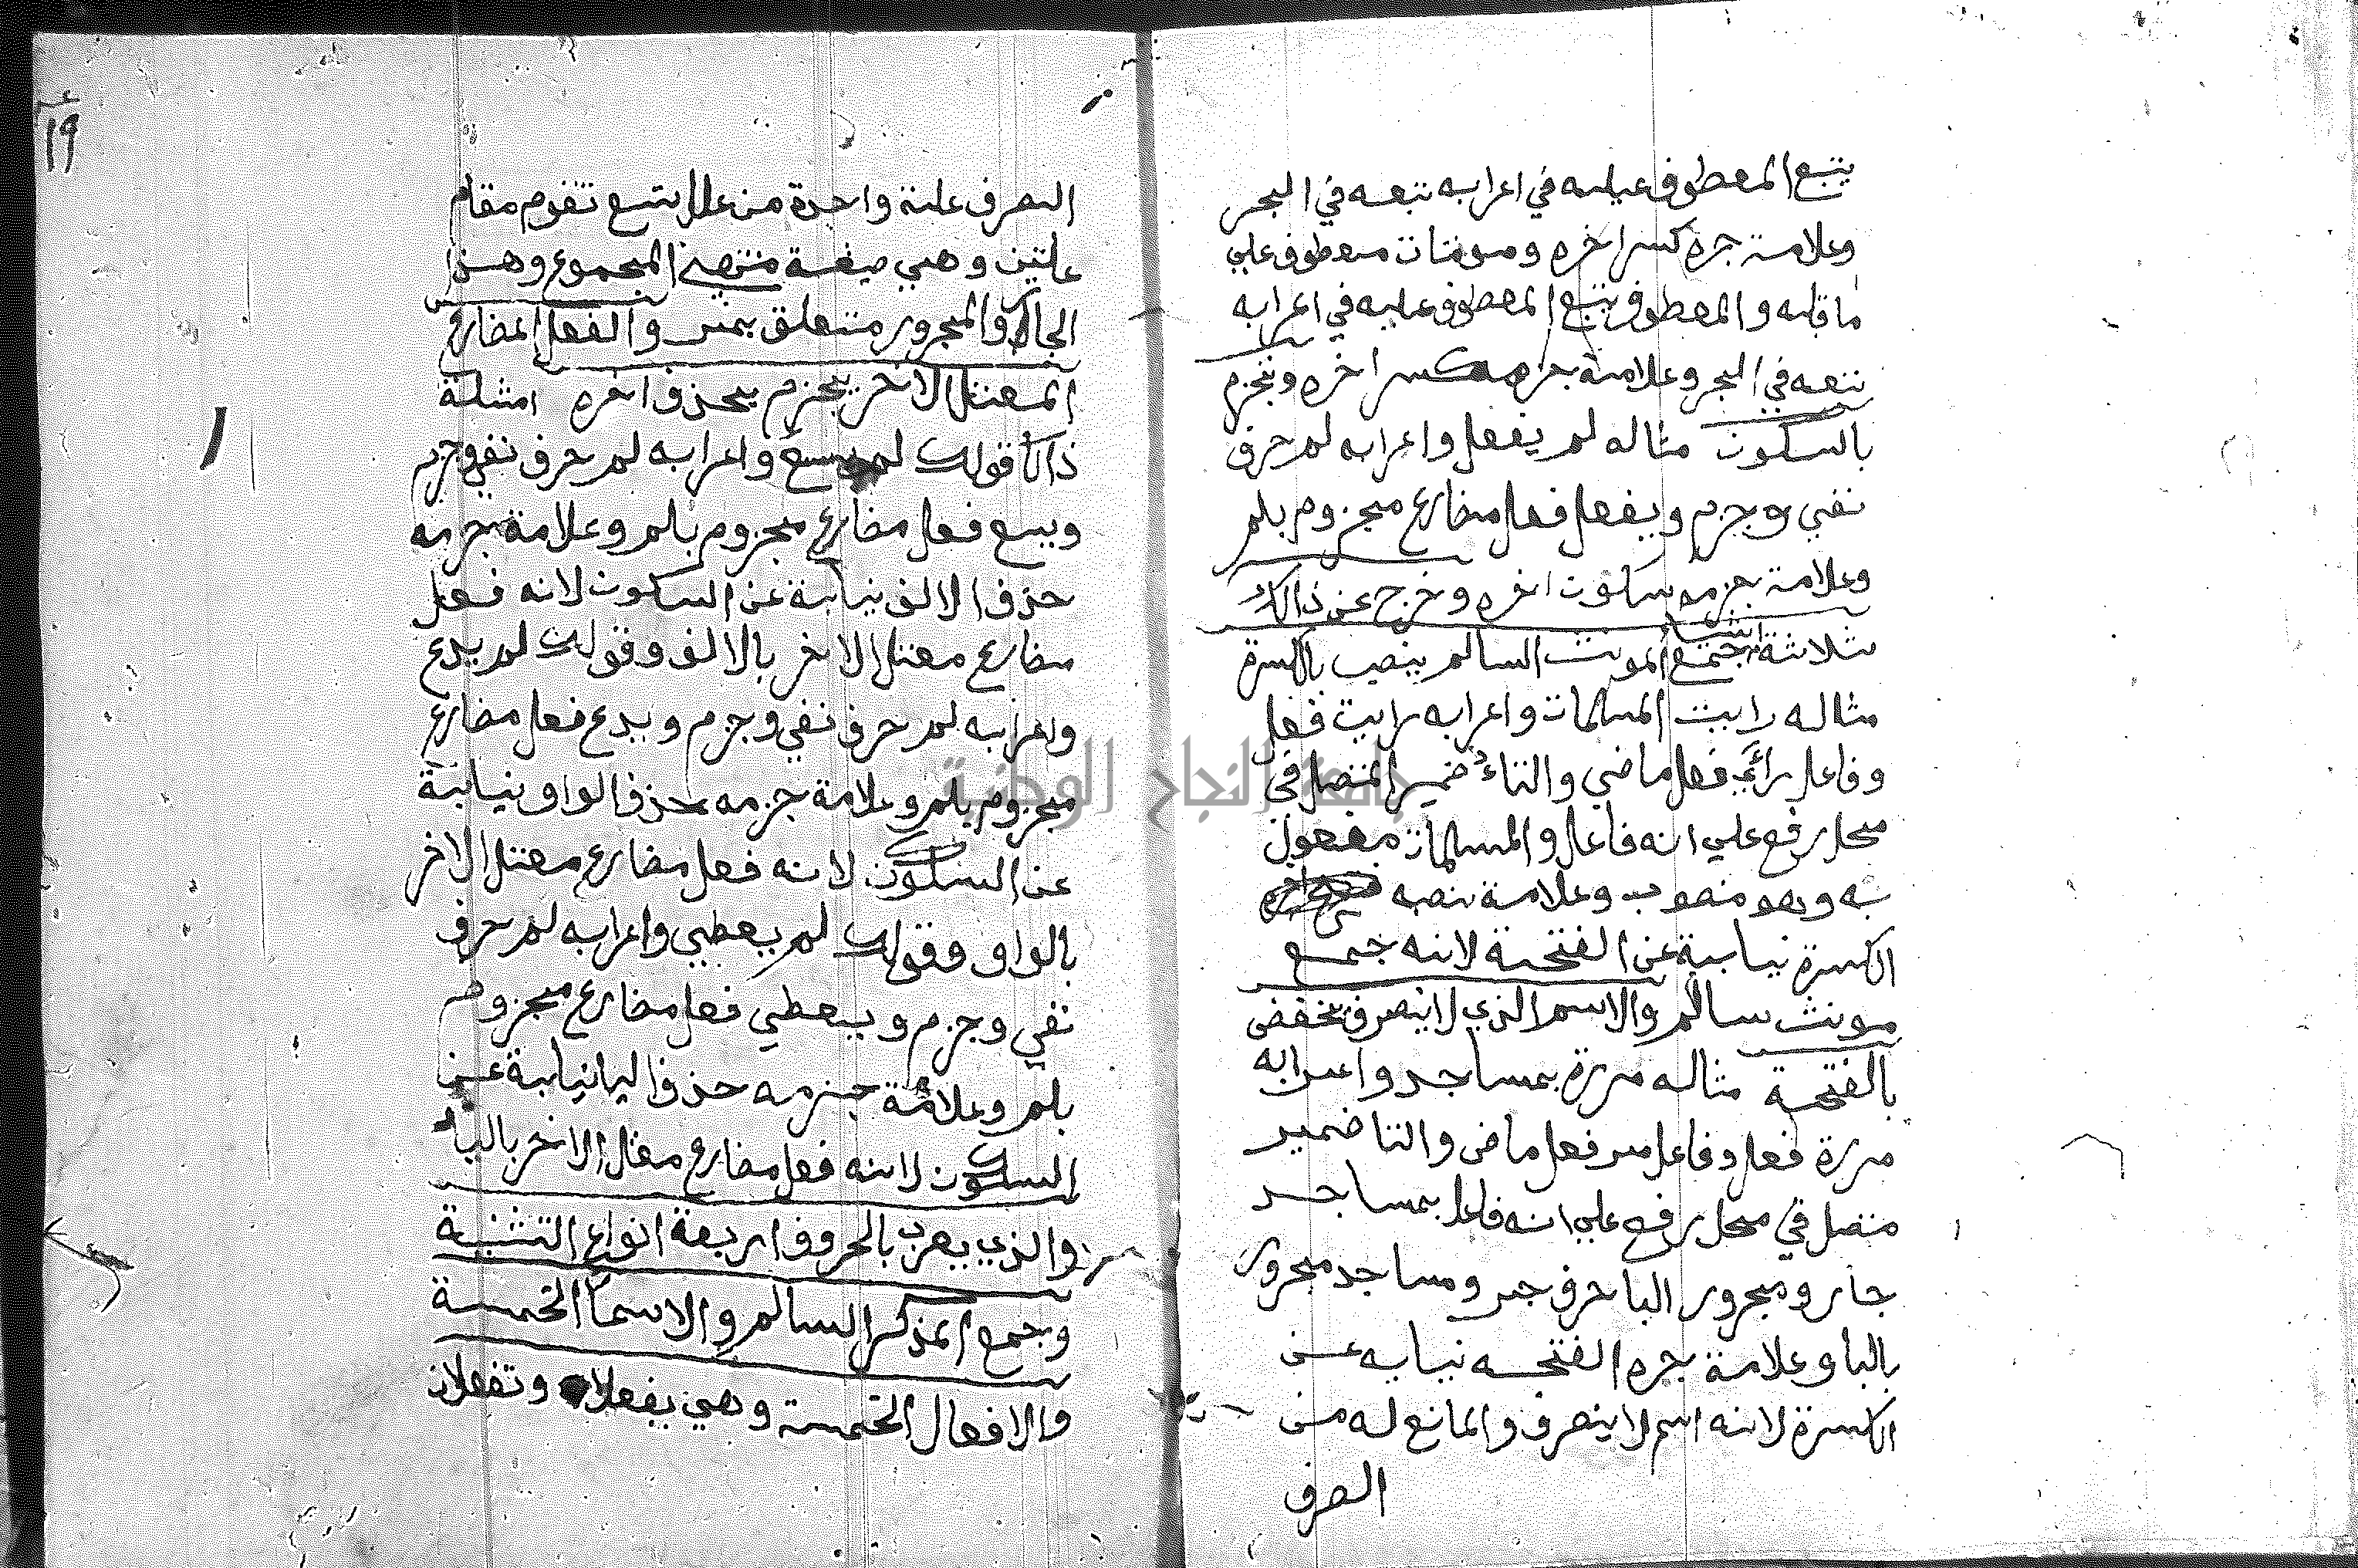 يتبع المعطوف عليه في اعرابه تبعه في الجر
وعلامة جره كسر اخره ومومنات معطوف علي
ما قبله والمعطوف يتبع المعطوف عليه في اعرابه
تبعه في الجر وعلامة جره كسر اخره وتجزم
بالسكون مثاله لم يفعل واعرابه لم حرف
نفي وجزم ويفعل فعل مضارع مجزوم بلم
وعلامة جزمه سكون اخره وخرج عن ذالك
ثلاثة اشيا جمع المونث السالم ينصب بالكسرة
مثاله رايت المسلمات واعرابه رايت فعل
وفاعل فعل ماضي والتاء ضمير المتصل في
محل رفع علي انه فاعل والمسلمات مفعول
به وهو منصوب وعلامة نصبه
الكسرة نيابية عن الفتحة لانه جمع
مونث سالم والاسم الذي لا ينصرف يخفض
بالفتحة مثاله مررة بمساجد واعرابه
مررة فعل وفاعل مر فعل ماض والتا ضمير
متصل في محل رفع علي انه فاعل بمساجد
جار ومجرور البا حرف جر ومساجد مجرور
بالبا وعلامة جره الفتحه نيابه عن
الكسرة لانه اسم لا ينصرف والمانع له من
الصرف
١٩
الصرف علة واحدة من علل تسع تقوم مقام
علتين وهي صيغة منتهي المجموع وهذا
الجار والمجرور متعلق بمر والفعل المضارع
المعتل الاخر يجزم بحذف اخره امثلة
ذالك قولك لم يسع واعرابه لم حرف نفي وجزم
ويسع فعل مضارع مجزوم بلم وعلامة جزمه
حذف الالف نيابة عن السكون لانه فعل
مضارع معتل الاخر بالالف وقولك لم يدع
واعرابه لم حرف نفي وجزم ويدع فعل مضارع
مجزوم بلم وعلامة جزمه حذف الواو نيابة
عن السكون لانه فعل مضارع معتل الاخر
بالواو وقولك لم يعطي واعرابه لم حرف
نفي وجزم ويعطي فعل مضارع مجزوم
بلم وعلامة جزمه حذف اليا نيابية عن
السكون لانه فعل مضارع معتل الاخر بالياء
والذي يعرب بالحروف اربعة انواع التثنية
وجمع المذكر السالم والاسماء الخمسة
والافعال الخمسة وهي يفعلان وتفعلان
جامعة النجاح الوطنية